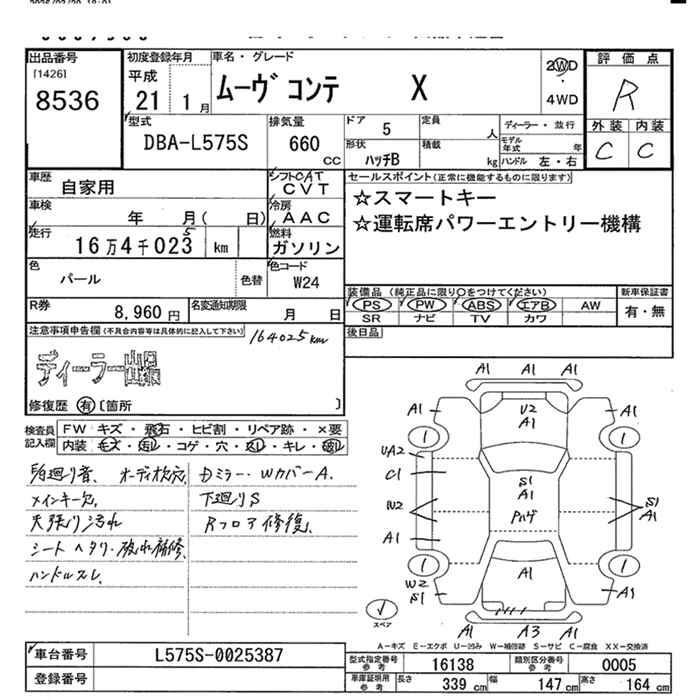 出品番号
[1426]
8536
初度登録年月
平成
21 1月
車名・グレード
ムーヴ コンテ X
2WD
・
4WD
評価点
R
外装 内装
C C
型式
DBA-L575S
排気量
660
CC
ドア 5
形状
ハッチB
定員
人
積載
kg
ディーラー・並行
モデル年式 年
ハンドル 左・右
車歴
自家用
シフトCAT
CVT
車検
年 月( 日)
冷房
AAC
走行
16万4千023 km
5
燃料
ガソリン
色
パール
色替
色コード
W24
R券
8,960円
名変通知期限
月 日
セールスポイント(正常に機能するものに限ります)
☆スマートキー
☆運転席パワーエントリー機構
装備品 (純正品に限り○をつけてください)
PS PW ABS エアB AW
SR ナビ TV カワ
新車保証書
有・無
後日品
注意事項申告欄(不具合内容等は具体的に記入して下さい)
164025km
ディーラー出品
修復歴 有 [箇所 ]
検査員
記入欄
FW キズ・飛石・ヒビ割・リペア跡・×要
内装・モズ・汚レ・コゲ・穴・返し・キレ・破レ
メインキー欠
天張り汚れ
シートヘタリ・破れ補修、
ハンドルスレ
Dミラー・WカバーA、
下廻りS
Rフロア修復、
A1 A1 A1
A1 U2 A1
A1
UA2
C1
W2
A1
W2
S1
S1
A1
Pハゲ
S1
A1
A1
A1
A1 A3 A1
スペア
A-キズ E-エクボ U-凹み W-補修跡 S-サビ C-腐食 XX-交換済
車台番号 L575S-0025387
登録番号
型式指定番号
参考
16138
類別区分番号
参考
0005
車庫証明用
参考
長さ 339 cm 幅 147 cm 高さ 164 cm